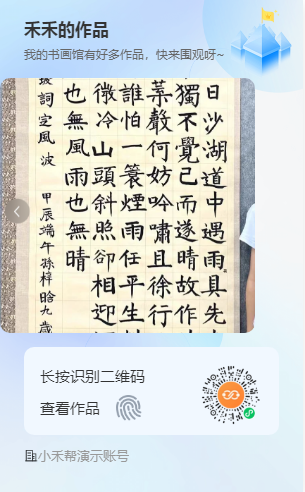 禾禾的作品
我的书画馆有好多作品，快来围观呀~
日沙湖道中遇雨具先
獨不覺已而遂晴故作
葉聲何妨吟嘯且徐行
誰怕一簑煙雨任平生
微冷山頭斜照卻相迎
也無風雨也無晴
坡詞定風波
甲辰端午孫梓晗九歲
长按识别二维码
查看作品
小禾帮演示账号